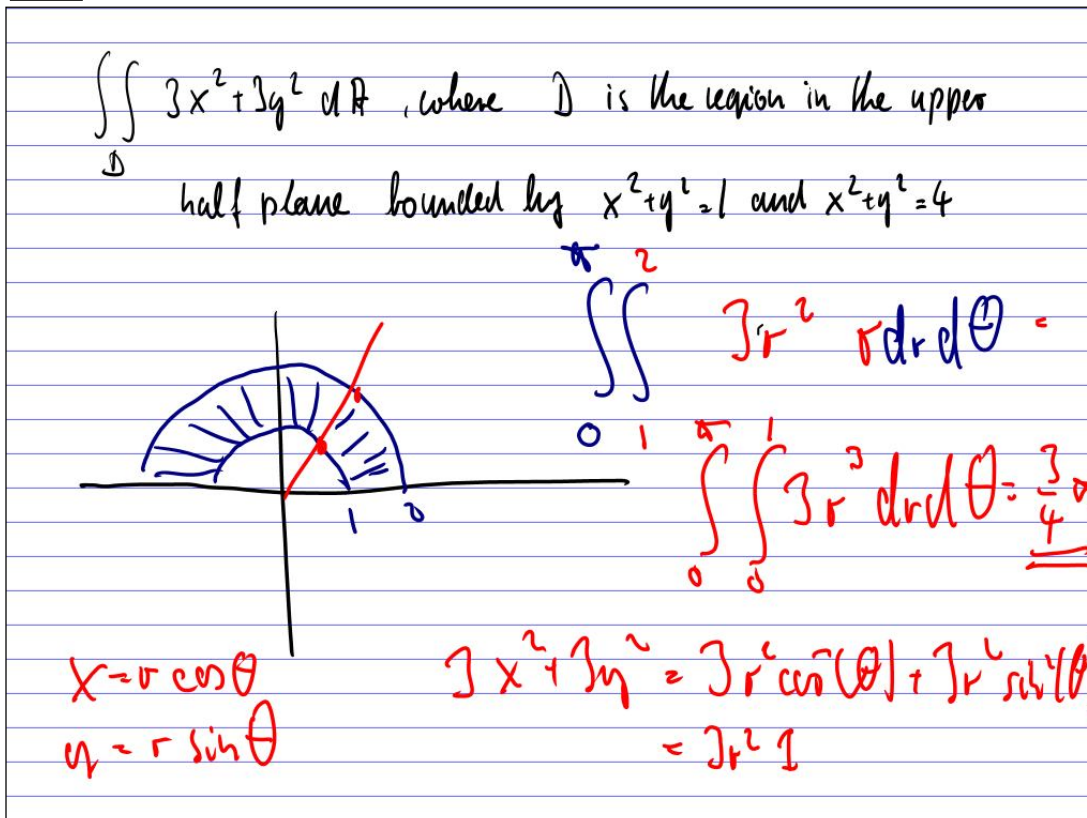 ∬_D 3x² + 3y² dA , where D is the region in the upper
half plane bounded by x² + y² = 1 and x² + y² = 4
∫_0^π ∫_1^2 3r² r dr dθ =
∫_0^π ∫_0^1 3r³ dr dθ = 3/4 π
1 2
x = r cos θ
y = r sin θ
3x² + 3y² = 3r² cos²(θ) + 3r² sin²(θ
= 3r² 1